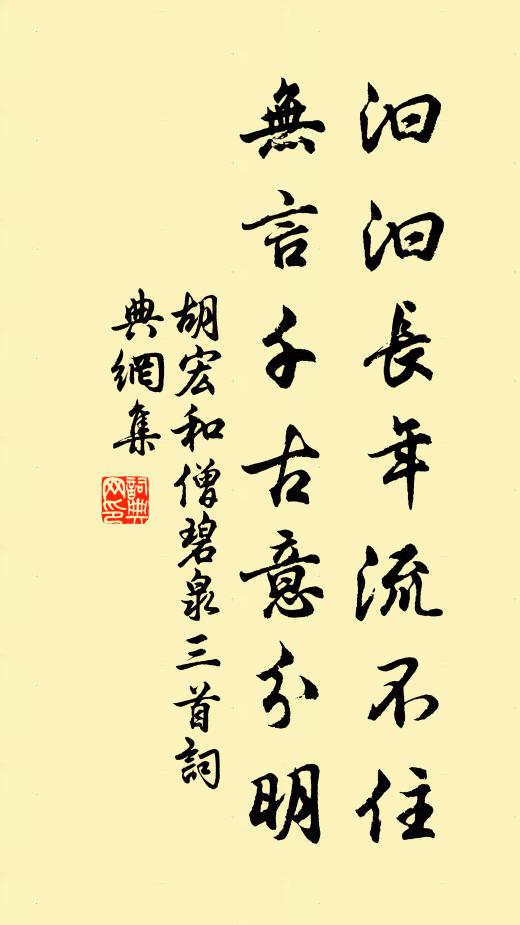 汩汩長年流不住
無言千古意分明
胡宏和僧碧泉三首詞
典網集
詞典網印